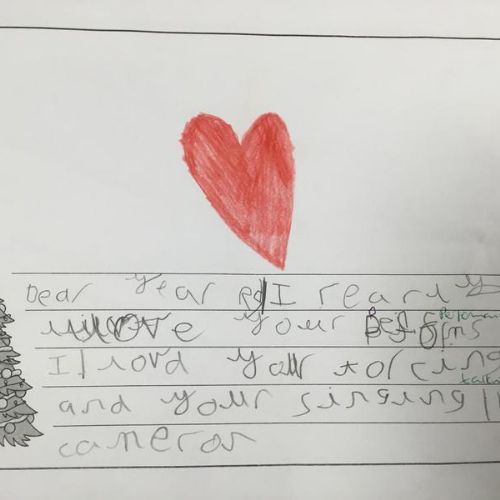 Dear Year R I reardy
love your performs
I lovd your torcing
and your singing
cameron